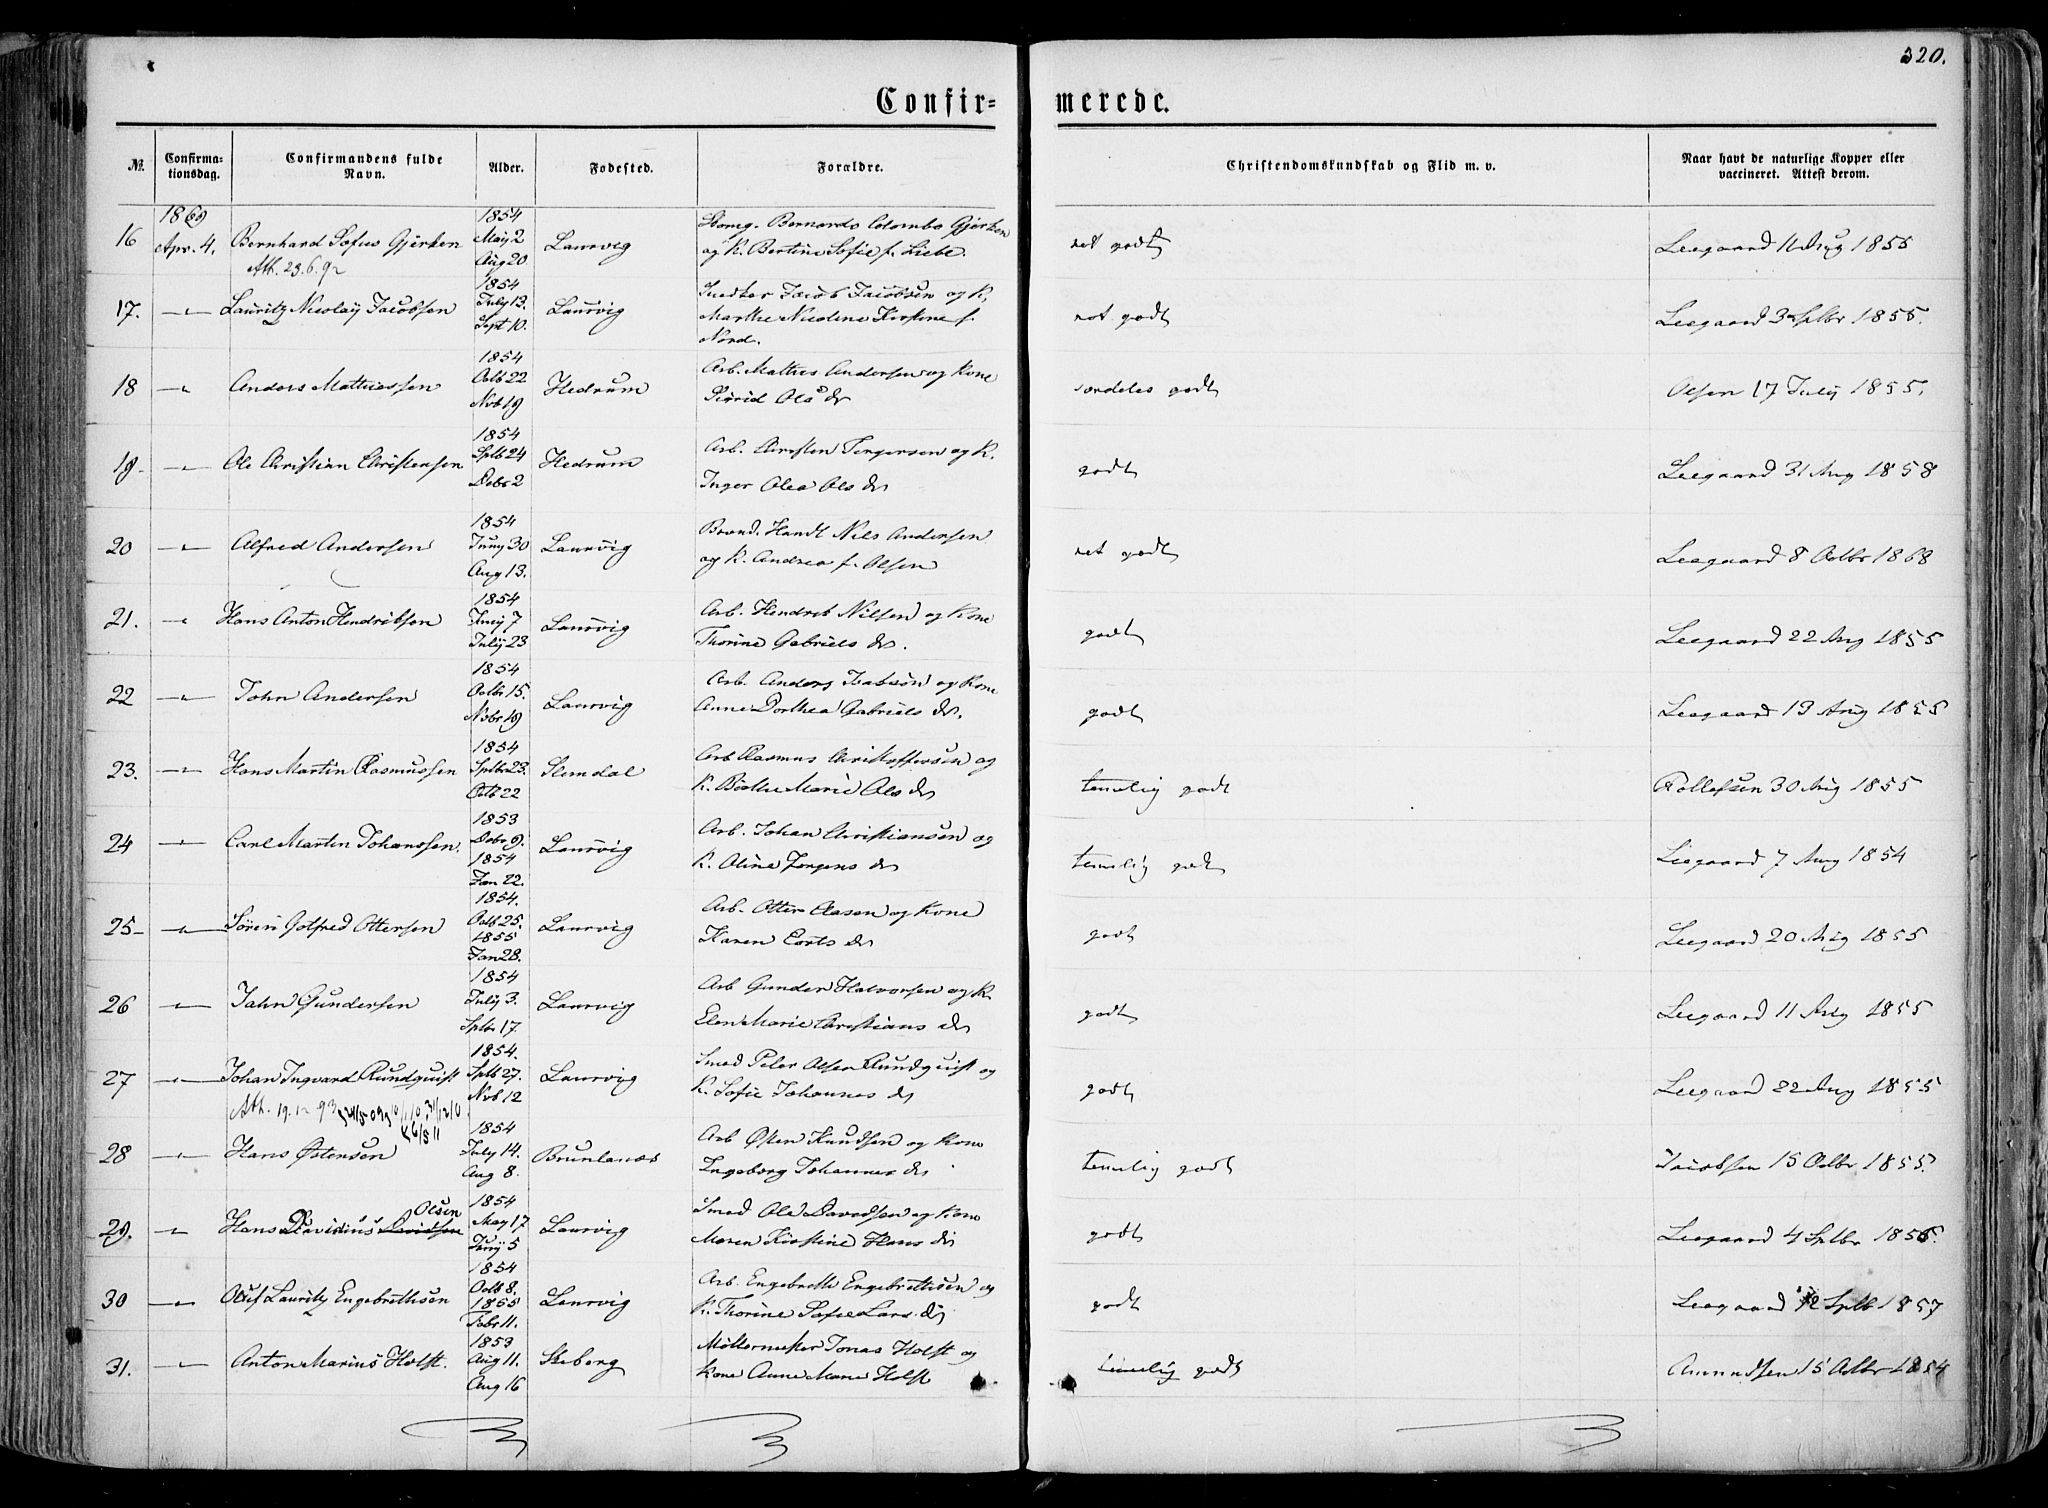 320.
Confir- merede.
No. Confirma- tionsdag. Confirmandens fulde Navn. Alder. Fødested. Forældre. Christendomskundskab og Flid m. v. Naar havt de naturlige Kopper eller vaccineret. Attest derom.
1869 1854
16 Apr. 4. Bernhard Sofus Gjerken May 2 Aug 20 Laurvig Bernards Colombo Gjerken
og K. Bertine Sofie f. Liebe. ret godt Leegaard 11 Aug 1855
Att. 23.6.92
17. -"- Lauritz Nicolay Jacobsen 1854 July 13. Sept 10. Laurvig Snedker Jacob Jacobsen og K.
Marthe Nicoline Kirstine f.
Nord. ret godt Leegaard 3 Sptbr 1855.
18 -"- Anders Mathiessen 1854 Octb 22 Nvb 19 Hedrum Arb. Mathies Andersen og Kone
Sigrid Olsdr særdeles godt Olsen 17 July 1855.
19. -"- Ole Christian Christensen 1854 Sptb 24 Decbr 2 Hedrum Arb. Christen Torgersen og K.
Inger Olea Olsdr godt Leegaard 31 Aug 1858
20 -"- Alfred Andersen 1854 Juny 30 Aug 13. Laurvig Brænd. Handl Nils Andersen
og K. Andrea f. Olsen ret godt Leegaard 8 Octbr 1868
21. -"- Hans Anton Hendriksen 1854 Juny 7 July 23 Laurvig Arb. Hendrik Nilsen og Kone
Thorine Gabriels dr. godt Leegaard 22 Aug 1855
22 -"- John Andersen 1854 Octbr 15. Nvbr 19 Laurvig Arb. Anders Isaksøn og Kone
Anne Dorthea Gabriels dr. godt Leegaard 13 Aug 1855
23. -"- Hans Martin Rasmussen 1854 Sptbr 23. Octb 22 Slemdal Arb Rasmus Christoffersen og
K. Birthe Marie Olsdr temelig godt Rollefsen 30 Aug 1855
24 -"- Carl Martin Johanssen. 1853 Decbr 9. 1854 Jan 22. Laurvig Arb. Johan Christiansen og
K. Oline Jørgens dr temelig godt Leegaard 7 Aug 1854
25 -"- Søren Gotfred Ottersen 1854. Octb 25. 1855 Jan 28. Laurvig Arb. Otter Aasen og Kone
Karen Corts dr godt Leegaard 20 Aug 1855
26 -"- Jahn Gundersen 1854 July 3. Sptbr 17. Laurvig Arb Gunder Halvorsen og K.
Elen Marie Christians dr godt Leegaard 11 Aug 1855
27 -"- Johan Ingvard Rundquist 1854. Sptb 27. Nvb 12 Laurvig Smed Peter Olsen Rundquist og
K. Sofie Johannes dr godt Leegaard 22 Aug 1855
Att. 19.12 93
28 -"- Hans Østensen 1854 July 14. Aug 8. Brunlanæs Arb Østen Knudsen og Kone
Ingeborg Johannes dr temelig godt Jacobsen 15 Octbr 1855.
29. -"- Hans Davidius Davidsen Olsen 1854 May 17 Juny 5 Laurvig Smed Ole Davidsen og Kone
Maren Kirstine Hans dr godt Leegaard 4 Sptbr 1856.
30 -"- Oluf Lauritz Engebrethsen 1854 Octb 8. 1855 Febr 11. Laurvig Arb. Engebreth Engebrethsen og
K. Thorine Sofie Lars dr godt Leegaard 12 Sptb 1857
31. -"- Anton Marius Holst. 1853 Aug 11. Aug 16 Skeberg Møllermester Jonas Holst og
Kone Anne Marie Holst temelig godt Amundsen 15 Octbr 1854